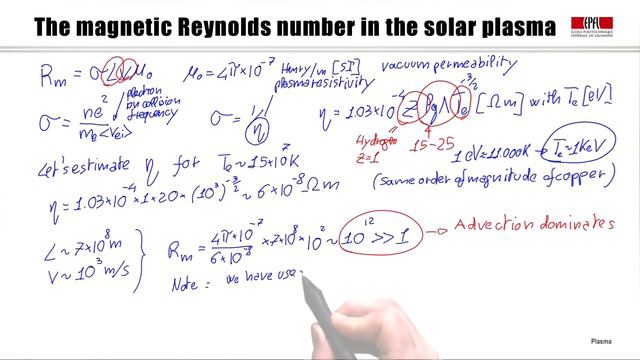 The magnetic Reynolds number in the solar plasma
EPFL
ÉCOLE POLYTECHNIQUE
FÉDÉRALE DE LAUSANNE
Rm = σ L V μ₀ μ₀ = 4π×10⁻⁷ Henry/m [SI] vacuum permeability
plasma resistivity
σ = ne² / me<νei> electron ion collision frequency σ = 1/η η = 1.03×10⁻⁴ Z lg Λ Te^-3/2 [Ωm] with Te [eV]
Hydrogen Z=1 15-25
Let's estimate η for Te ~ 15×10⁷K 1 eV ≈ 11.000K → Te ~ 1KeV
η = 1.03×10⁻⁴ × 1 × 20 × (10³)^-3/2 ~ 6×10⁻⁸ Ωm (same order of magnitude of copper)
L ~ 7×10⁸ m
V ~ 10³ m/s
Rm = 4π×10⁻⁷ / 6×10⁻⁸ × 7×10⁸ × 10² ~ 10¹² >> 1 → Advection dominates
Note: we have use
Plasma